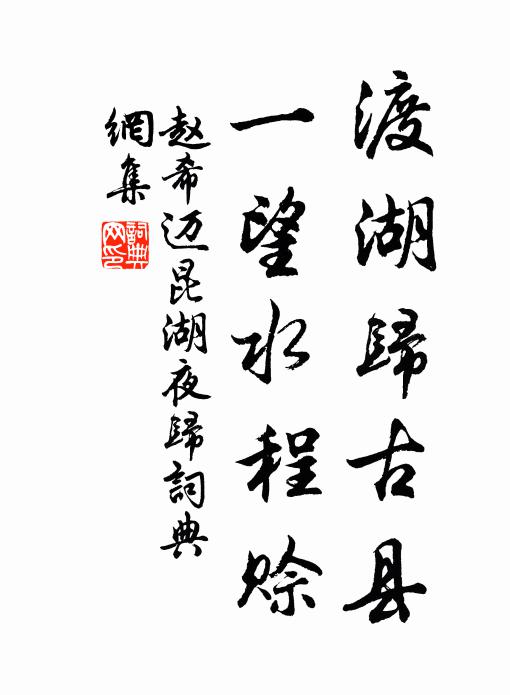 渡湖歸古县
一望水程赊
赵希迈昆湖夜歸詞典
網集
詞典
网印